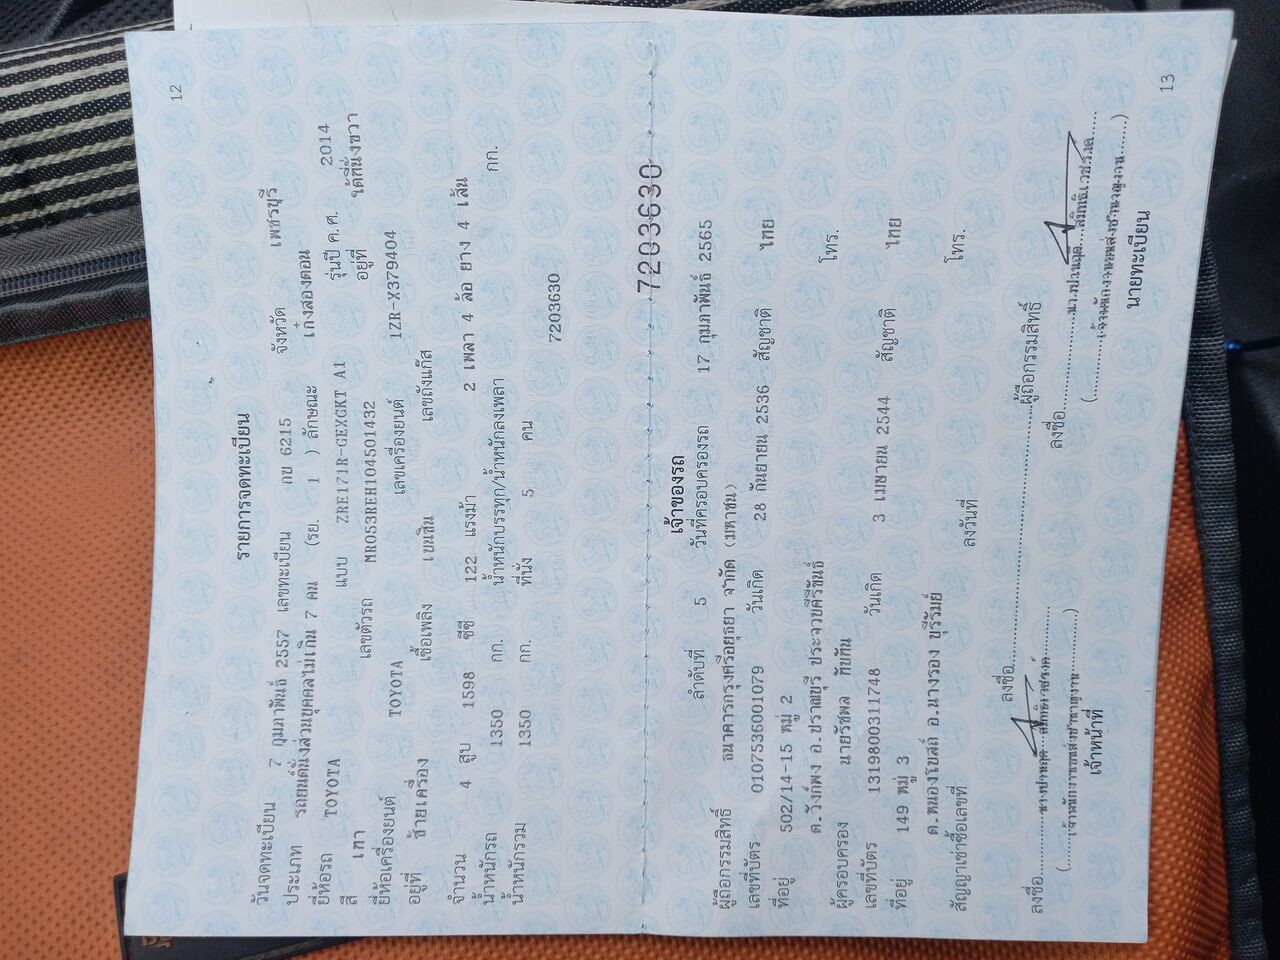 12
รายการจดทะเบียน
วันจดทะเบียน 7 กุมภาพันธ์ 2557 เลขทะเบียน กบ 6215 จังหวัด เพชรบุรี
ประเภท รถยนต์นั่งส่วนบุคคลไม่เกิน 7 คน (รย. 1 ) ลักษณะ เก๋งสองตอน
ยี่ห้อรถ TOYOTA แบบ ZRE171R-GEXGKT A1 รุ่นปี ค.ศ. 2014
สี เทา เลขตัวรถ MR053REH104501432 อยู่ที่ ใต้ที่นั่งขวา
ยี่ห้อเครื่องยนต์ TOYOTA เลขเครื่องยนต์ 1ZR-X379404
อยู่ที่ ซ้ายเครื่อง เชื้อเพลิง เบนซิน เลขถังแก๊ส
จำนวน 4 สูบ 1598 ซีซี 122 แรงม้า 2 เพลา 4 ล้อ ยาง 4 เส้น
น้ำหนักรถ 1350 กก. น้ำหนักบรรทุก/น้ำหนักลงเพลา กก.
น้ำหนักรวม 1350 กก. ที่นั่ง 5 คน
7203630
7203630
เจ้าของรถ
ลำดับที่ 5 วันที่ครอบครองรถ 17 กุมภาพันธ์ 2565
ผู้ถือกรรมสิทธิ์ ธนาคารกรุงศรีอยุธยา จำกัด (มหาชน)
เลขที่บัตร 0107536001079 วันเกิด 28 กันยายน 2536 สัญชาติ ไทย
ที่อยู่ 502/14-15 หมู่ 2
ต.วังก์พง อ.ปราณบุรี ประจวบคีรีขันธ์ โทร.
ผู้ครอบครอง นายรัชพล ทับทัน
เลขที่บัตร 1319800311748 วันเกิด 3 เมษายน 2544 สัญชาติ ไทย
ที่อยู่ 149 หมู่ 3
ต.หนองโบสถ์ อ.นางรอง บุรีรัมย์ โทร.
สัญญาเช่าซื้อเลขที่ ลงวันที่
ลงชื่อ ผู้ถือกรรมสิทธิ์
ลงชื่อ ลงชื่อ
เจ้าหน้าที่ นายทะเบียน
13